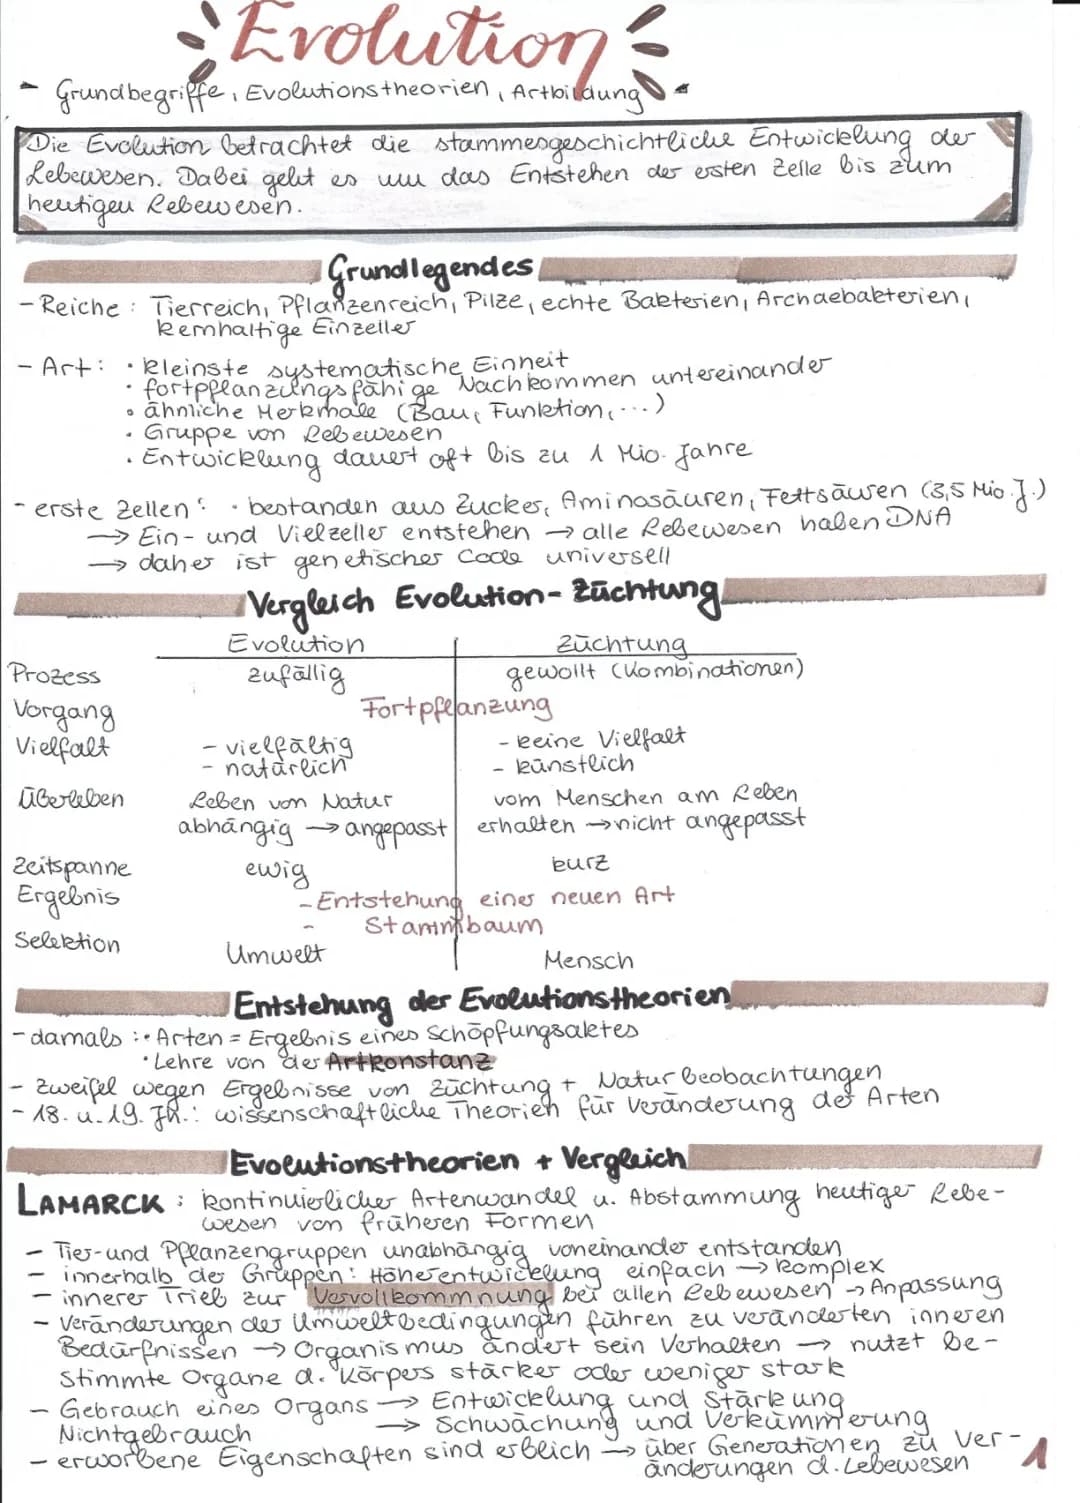 Evolution
Grundbegriffe, Evolutionstheorien, Artbildung
Die Evolution betrachtet die stammesgeschichtliche Entwicklung der
Lebewesen. Dabei geht es um das Entstehen der ersten Zelle bis zum
heutigen Lebewesen.
Grundlegendes
- Reiche: Tierreich, Pflanzenreich, Pilze, echte Bakterien, Archaebakterien,
kernhaltige Einzeller
- Art: • kleinste systematische Einheit
• fortpflanzungsfähige Nachkommen untereinander
• ähnliche Merkmale (Bau, Funktion, ...)
• Gruppe von Lebewesen
• Entwicklung dauert oft bis zu 1 Mio. Jahre
- erste Zellen: • bestanden aus Zucker, Aminosäuren, Fettsäuren (3,5 Mio. J.)
→ Ein- und Vielzeller entstehen → alle Lebewesen haben DNA
→ daher ist genetischer Code universell
Vergleich Evolution-Züchtung
Evolution Züchtung
Prozess zufällig gewollt (Kombinationen)
Vorgang Fortpflanzung
Vielfalt - vielfältig - keine Vielfalt
- natürlich - künstlich
Überleben Leben von Natur vom Menschen am Leben
abhängig → angepasst erhalten → nicht angepasst
Zeitspanne ewig kurz
Ergebnis - Entstehung einer neuen Art
- Stammbaum
Selektion Umwelt Mensch
Entstehung der Evolutionstheorien
- damals: • Arten = Ergebnis eines Schöpfungsaktes
• Lehre von der Artkonstanz
- Zweifel wegen Ergebnisse von Züchtung + Naturbeobachtungen
- 18. u. 19. Jh.: wissenschaftliche Theorien für Veränderung der Arten
Evolutionstheorien + Vergleich
LAMARCK: kontinuierlicher Artenwandel u. Abstammung heutiger Lebe-
wesen von früheren Formen
- Tier- und Pflanzengruppen unabhängig voneinander entstanden
- innerhalb der Gruppen: Höherentwickelung einfach → komplex
- innerer Trieb zur Vervollkommnung bei allen Lebewesen → Anpassung
- Veränderungen der Umweltbedingungen führen zu veränderten inneren
Bedürfnissen → Organismus ändert sein Verhalten → nutzt be-
stimmte Organe d. Körpers stärker oder weniger stark
- Gebrauch eines Organs → Entwicklung und Stärkung
Nichtgebrauch → Schwächung und Verkümmerung
- erworbene Eigenschaften sind erblich → über Generationen zu Ver-
änderungen d. Lebewesen
1